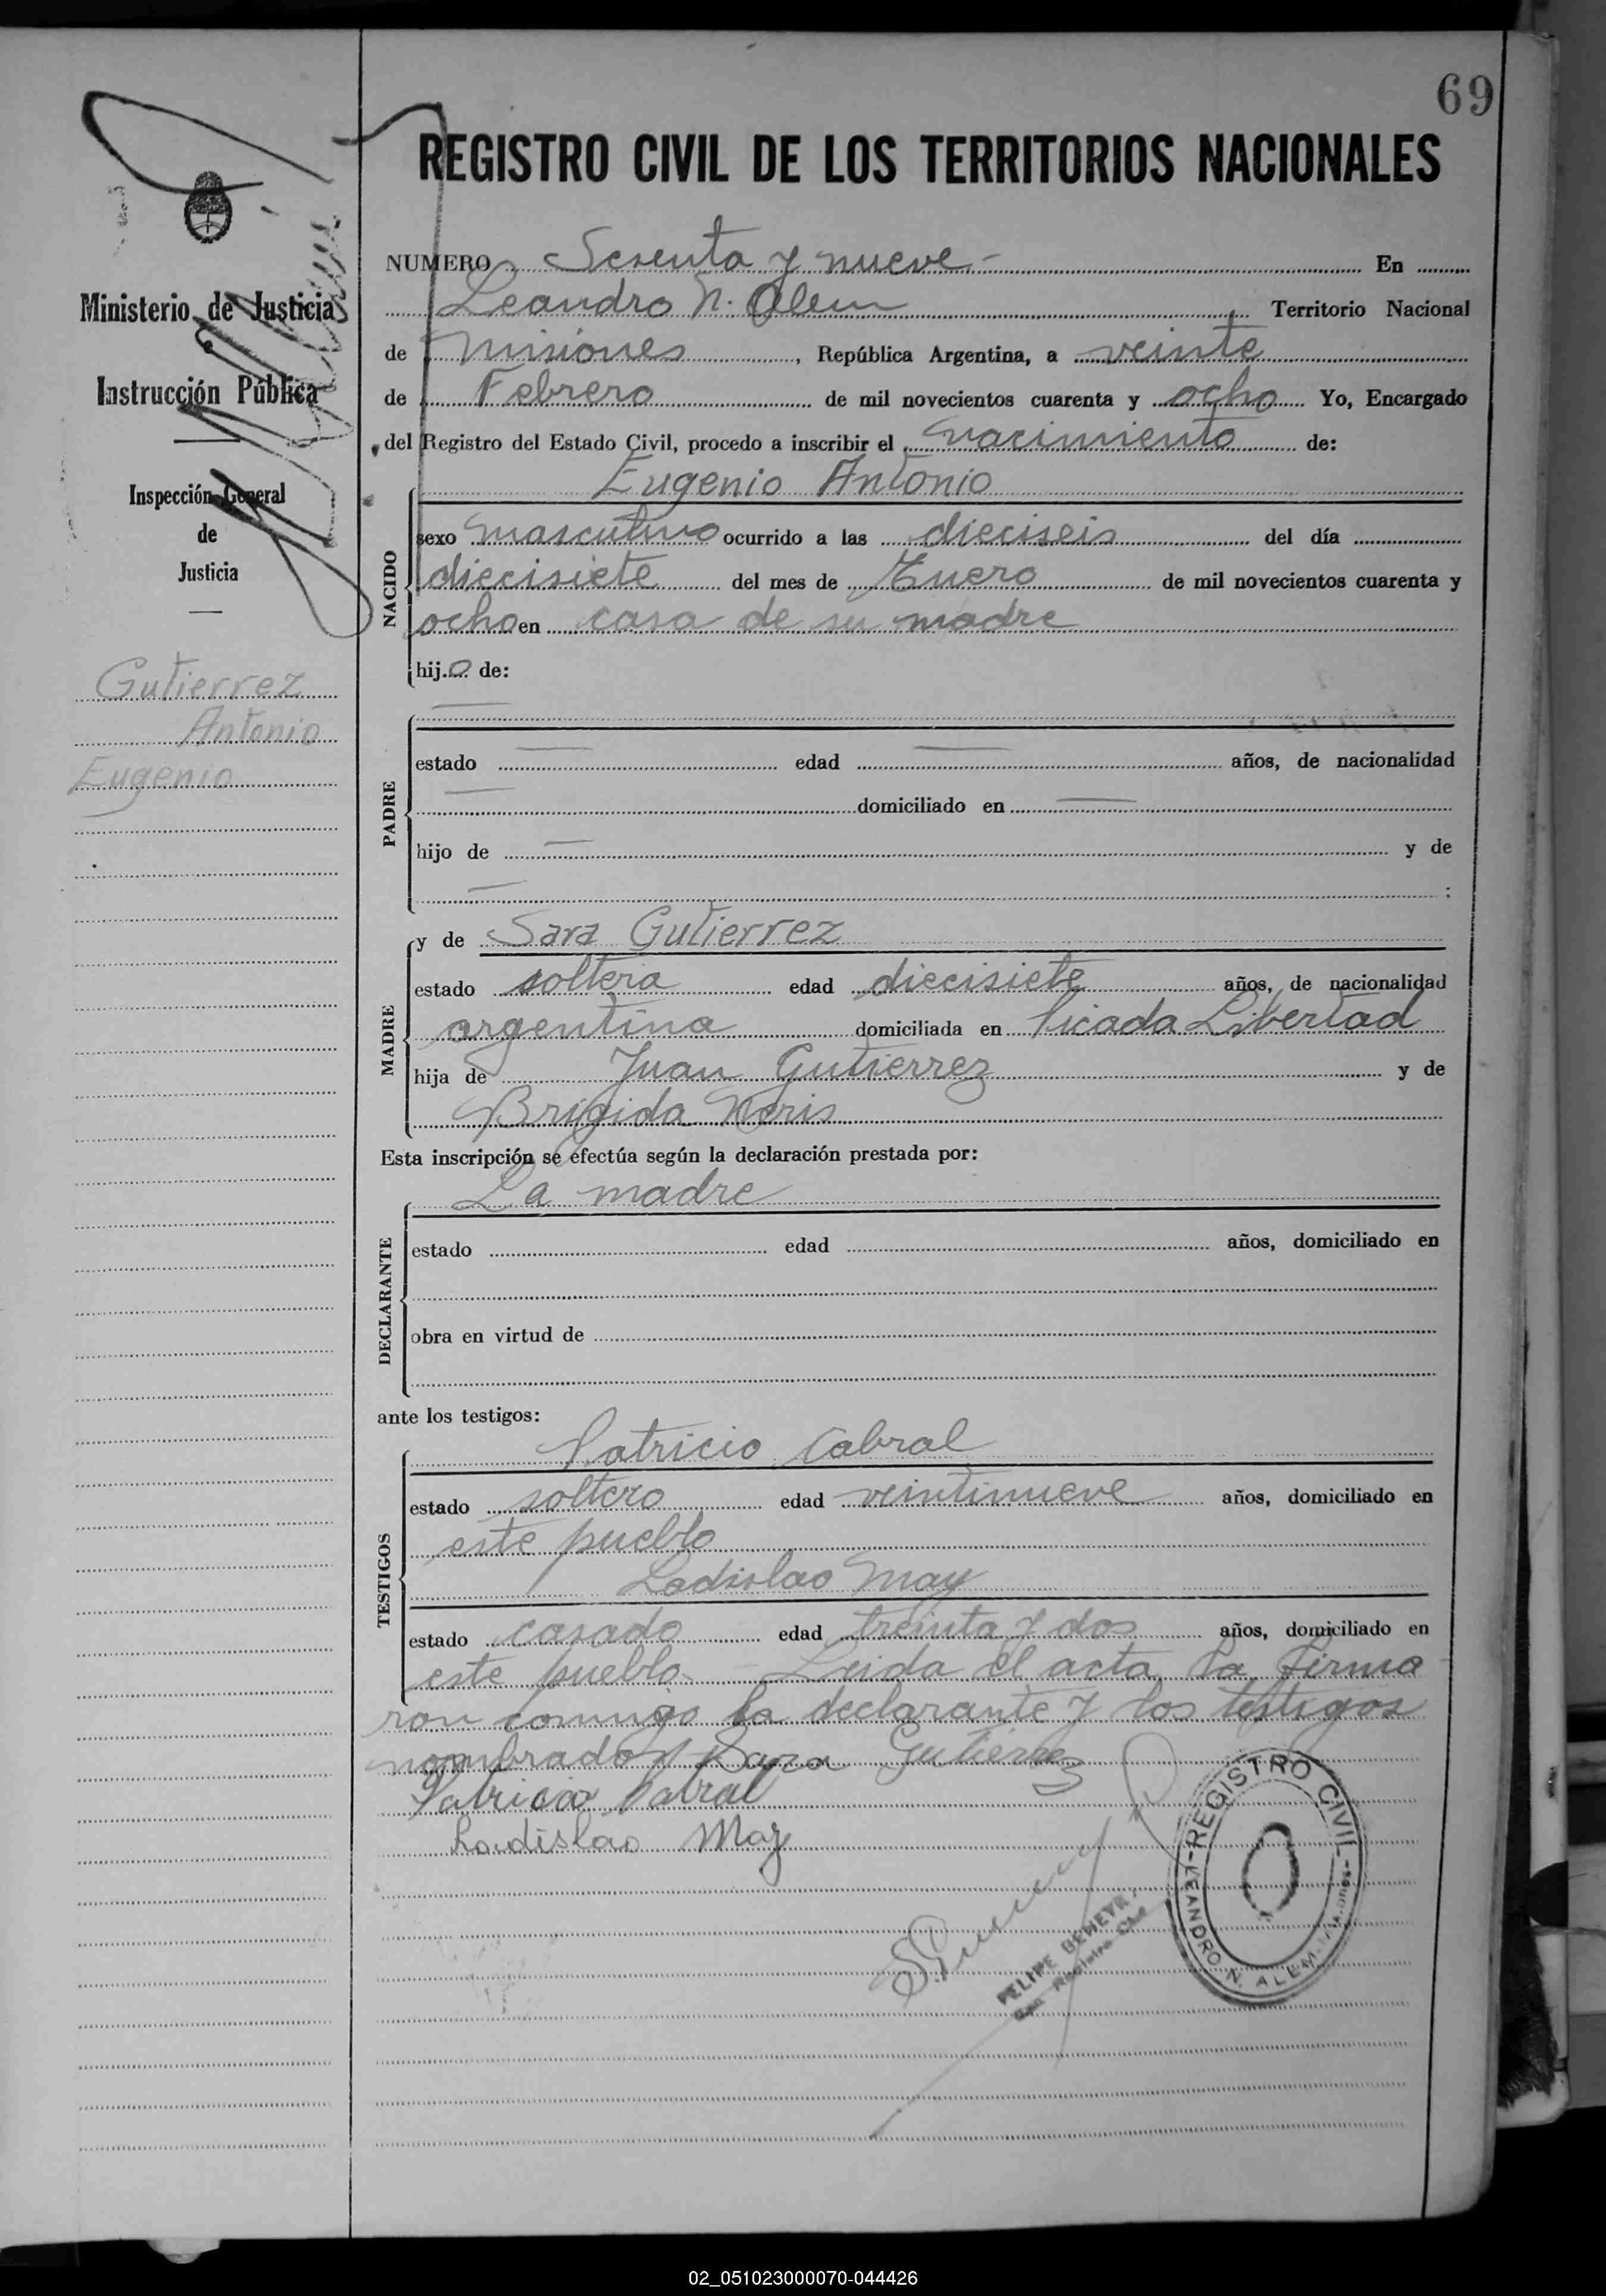 69
REGISTRO CIVIL DE LOS TERRITORIOS NACIONALES
Ministerio de Justicia
Instrucción Pública
Inspección General
de
Justicia
Gutierrez
Antonio
Eugenio
NUMERO Sesenta y nueve.- En
Leandro N. Alem Territorio Nacional
de Misiones, República Argentina, a veinte
de Febrero de mil novecientos cuarenta y ocho Yo, Encargado
del Registro del Estado Civil, procedo a inscribir el nacimiento de:
Eugenio Antonio
NACIDO
sexo masculino ocurrido a las dieciseis del día
diecisiete del mes de Enero de mil novecientos cuarenta y
ocho en casa de su madre
hijo de:
PADRE
estado — edad — años, de nacionalidad
— domiciliado en —
hijo de — y de
— :
MADRE
y de Sara Gutierrez
estado soltera edad diecisiete años, de nacionalidad
argentina domiciliada en Picada Libertad
hija de Juan Gutierrez y de
Brigida Neris
Esta inscripción se efectúa según la declaración prestada por:
La madre
DECLARANTE
estado edad años, domiciliado en
obra en virtud de
ante los testigos:
TESTIGOS
Patricio Cabral
estado soltero edad veintinueve años, domiciliado en
este pueblo
Ladislao May
estado casado edad treinta y dos años, domiciliado en
este pueblo.- Leida el acta, la firma
ron conmigo la declarante y los testigos
nombrados Sara Gutierrez
Patricio Cabral
Ladislao May
REGISTRO CIVIL
LEANDRO N. ALEM
FELIPE
Registro Civil
02_051023000070-044426